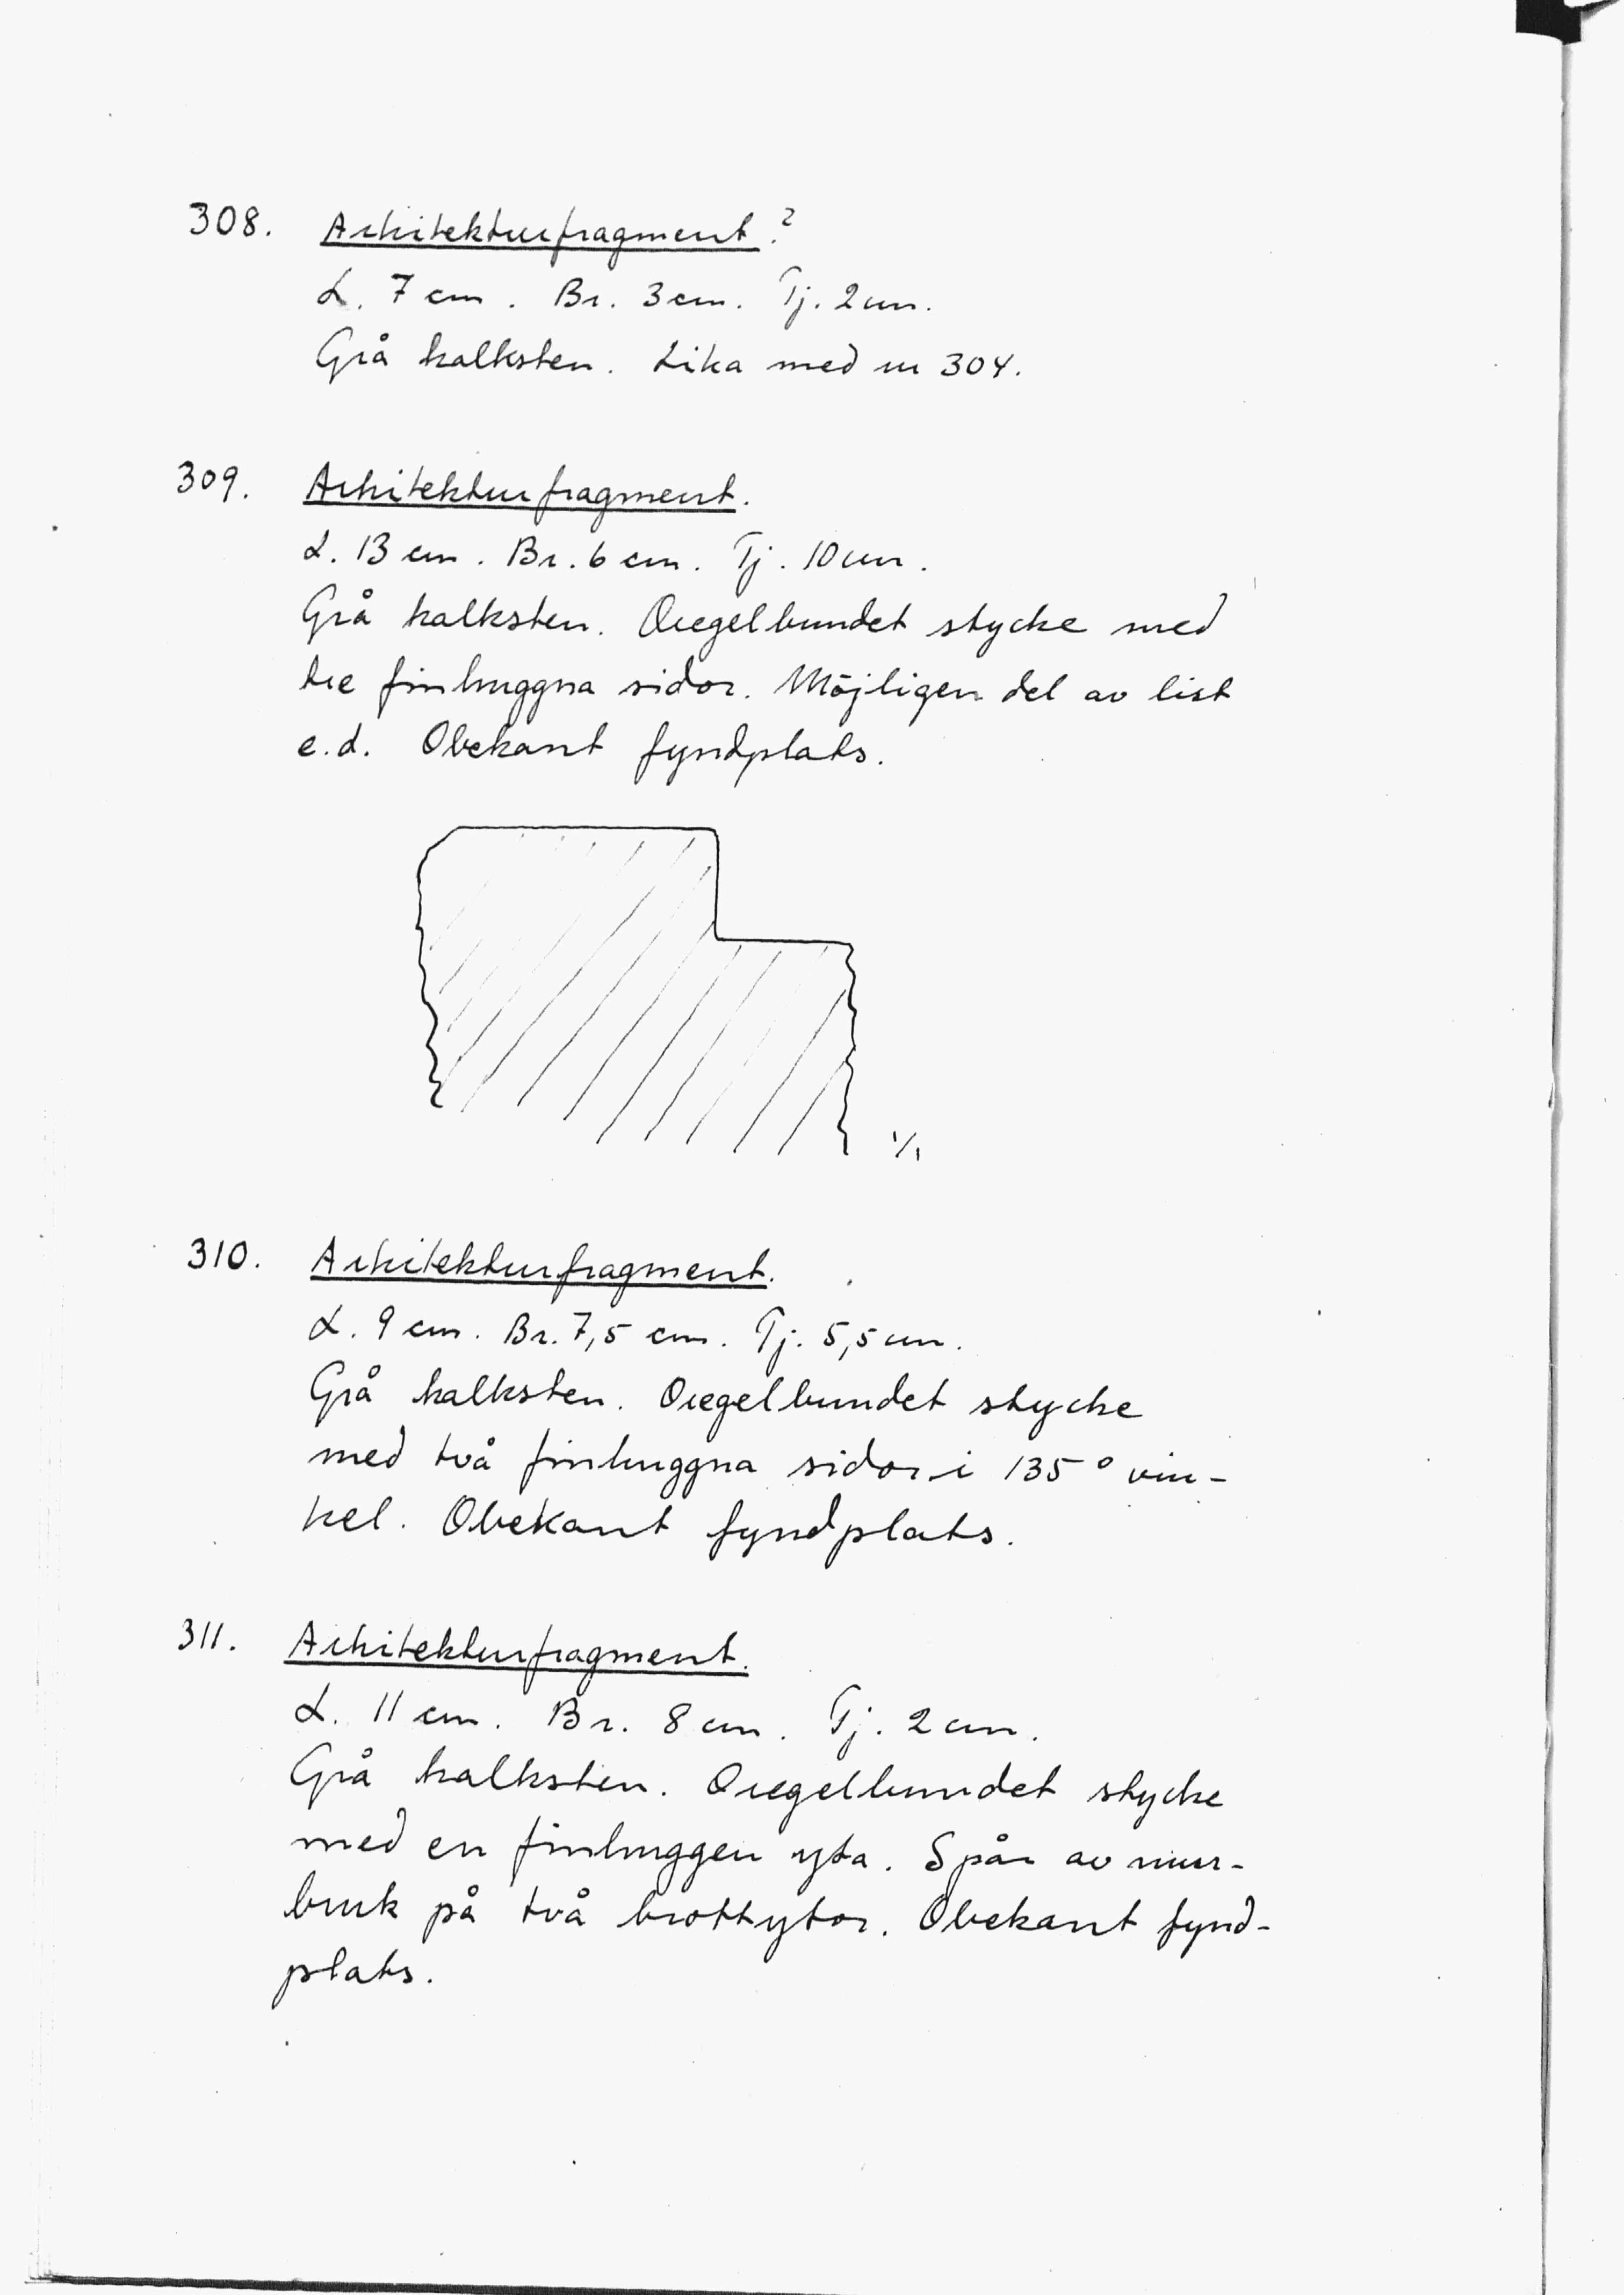 308. Arkitekturfragment.?
L. 7 cm. Br. 3 cm. Tj. 2 cm.
Grå kalksten. Lika med nr 304.
309. Arkitekturfragment.
L. 13 cm. Br. 6 cm. Tj. 10 cm.
Grå kalksten. Oregelbundet stycke med
tre finhuggna sidor. Möjligen del av list
e.d. Obekant fyndplats.
1/1
310. Arkitekturfragment.
L. 9 cm. Br. 7,5 cm. Tj. 5,5 cm.
Grå kalksten. Oregelbundet stycke
med två finhuggna sidor i 135° vin-
kel. Obekant fyndplats.
311. Arkitekturfragment.
L. 11 cm. Br. 8 cm. Tj. 2 cm.
Grå kalksten. Oregelbundet stycke
med en finhuggen yta. Spår av mur-
bruk på två brottytor. Obekant fynd-
plats.